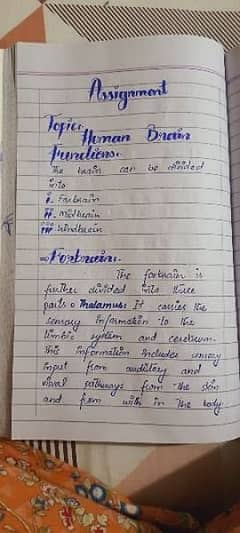 Assignment
Topic:
Human Brain
Functions.
The brain can be divided
into
i. Forbrain
ii. Midbrain
iii. Hindbrain
⇒Forbrain:
The forbrain is
further divided into three
parts Thalamus: It carries the
sensory information to the
limbic system and cerebrum.
This information includes sensory
input from auditory and
visual pathways from the skin
and from with in the body.